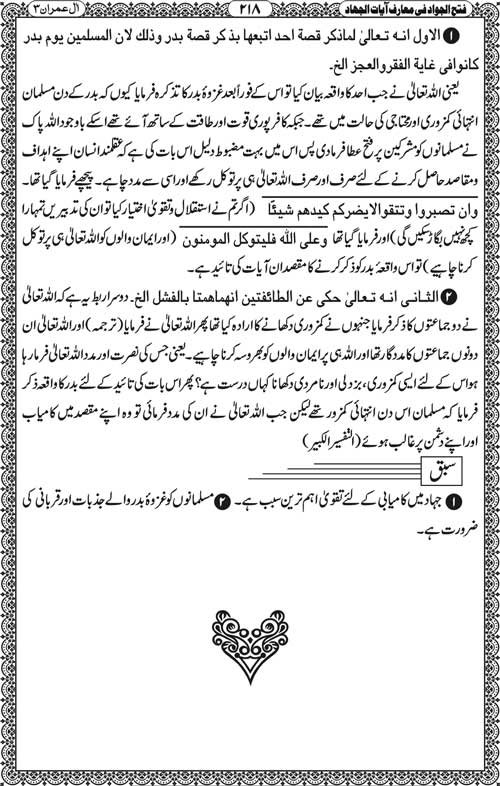 فتح الجواد فی معارف آیات الجہاد ۲۱۸ آل عمران ۳
❶ الاول انہ تعالیٰ لماذکر قصة احد اتبعها بذکر قصة بدر وذلك لان المسلمین یوم بدر
کانوافی غایة الفقر والعجز الخ۔
یعنی اللہ تعالیٰ نے جب احد کا واقعہ بیان کیا تو اس کے فوراً بعد غزوۂ بدر کا تذکرہ فرمایا کیوں کہ بدر کے دن مسلمان
انتہائی کمزوری اور محتاجی کی حالت میں تھے۔ جبکہ کافر پوری قوت اور طاقت کے ساتھ آئے تھے اسکے باوجود اللہ پاک
نے مسلمانوں کو مشرکین پر فتح عطا فرمادی پس اس میں بہت مضبوط دلیل اس بات کی ہے کہ عقلمند انسان اپنے اہداف
و مقاصد حاصل کرنے کے لئے صرف اور صرف اللہ تعالیٰ ہی پر توکل رکھے اور اسی سے مدد چاہے۔ پیچھے فرمایا گیا تھا۔
وان تصبروا وتتقوالایضرکم کیدهم شیئًا (اگر تم نے استقلال و تقویٰ اختیار کیا تو ان کی تدبیریں تمہارا
کچھ نہیں بگاڑ سکیں گی) اور فرمایا گیا تھا وعلی الله فلیتوکل المومنون (اور ایمان والوں کو اللہ تعالیٰ ہی پر توکل
کرنا چاہیے) تو اس واقعۂ بدر کو ذکر کرنے کا مقصد ان آیات کی تائید ہے۔
❷ الثانی انہ تعالیٰ حکی عن الطائفتین انهماهمتا بالفشل الخ۔ دوسرا ربط یہ ہے کہ اللہ تعالیٰ
نے دو جماعتوں کا ذکر فرمایا جنہوں نے کمزوری دکھانے کا ارادہ کیا تھا پھر اللہ تعالیٰ نے فرمایا (ترجمہ) اور اللہ تعالیٰ ان
دونوں جماعتوں کا مددگار تھا اور اللہ ہی پر ایمان والوں کو بھروسہ کرنا چاہیے۔ یعنی جس کی نصرت اور مدد اللہ تعالیٰ فرما رہا
ہو اس کے لئے ایسی کمزوری، بزدلی اور نامردی دکھانا کہاں درست ہے؟ پھر اس بات کی تائید کے لئے بدر کا واقعہ ذکر
فرمایا کہ مسلمان اس دن انتہائی کمزور تھے لیکن جب اللہ تعالیٰ نے ان کی مدد فرمائی تو وہ اپنے مقصد میں کامیاب
اور اپنے دشمن پر غالب ہوئے (التفسیر الکبیر)
سبق
❶ جہاد میں کامیابی کے لئے تقویٰ اہم ترین سبب ہے۔ ❷ مسلمانوں کو غزوۂ بدر والے جذبات اور قربانی کی
ضرورت ہے۔